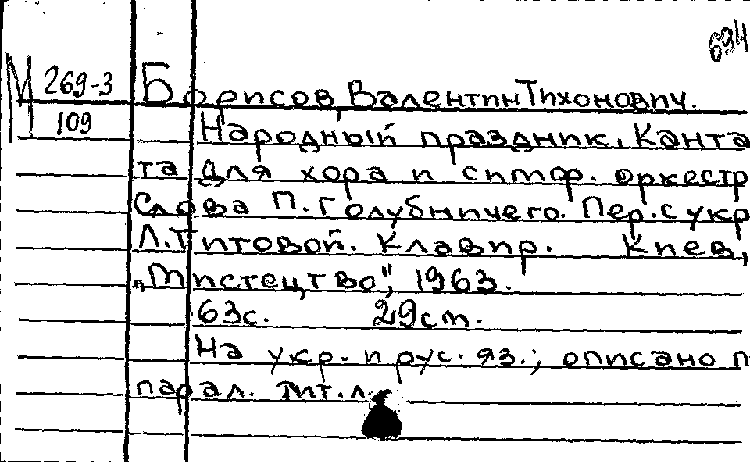 694
М 269-3
109
Борисов, Валентин Тихонович.
Народный праздник. Канта
та для хора и симф. оркестр
Слова П. Голубничего. Пер. с укр
Л. Титовой. Клавир. Киев,
„Мистецтво", 1963.
63с. 29см.
На укр. и рус. яз.; описано п
парал. тит. л.